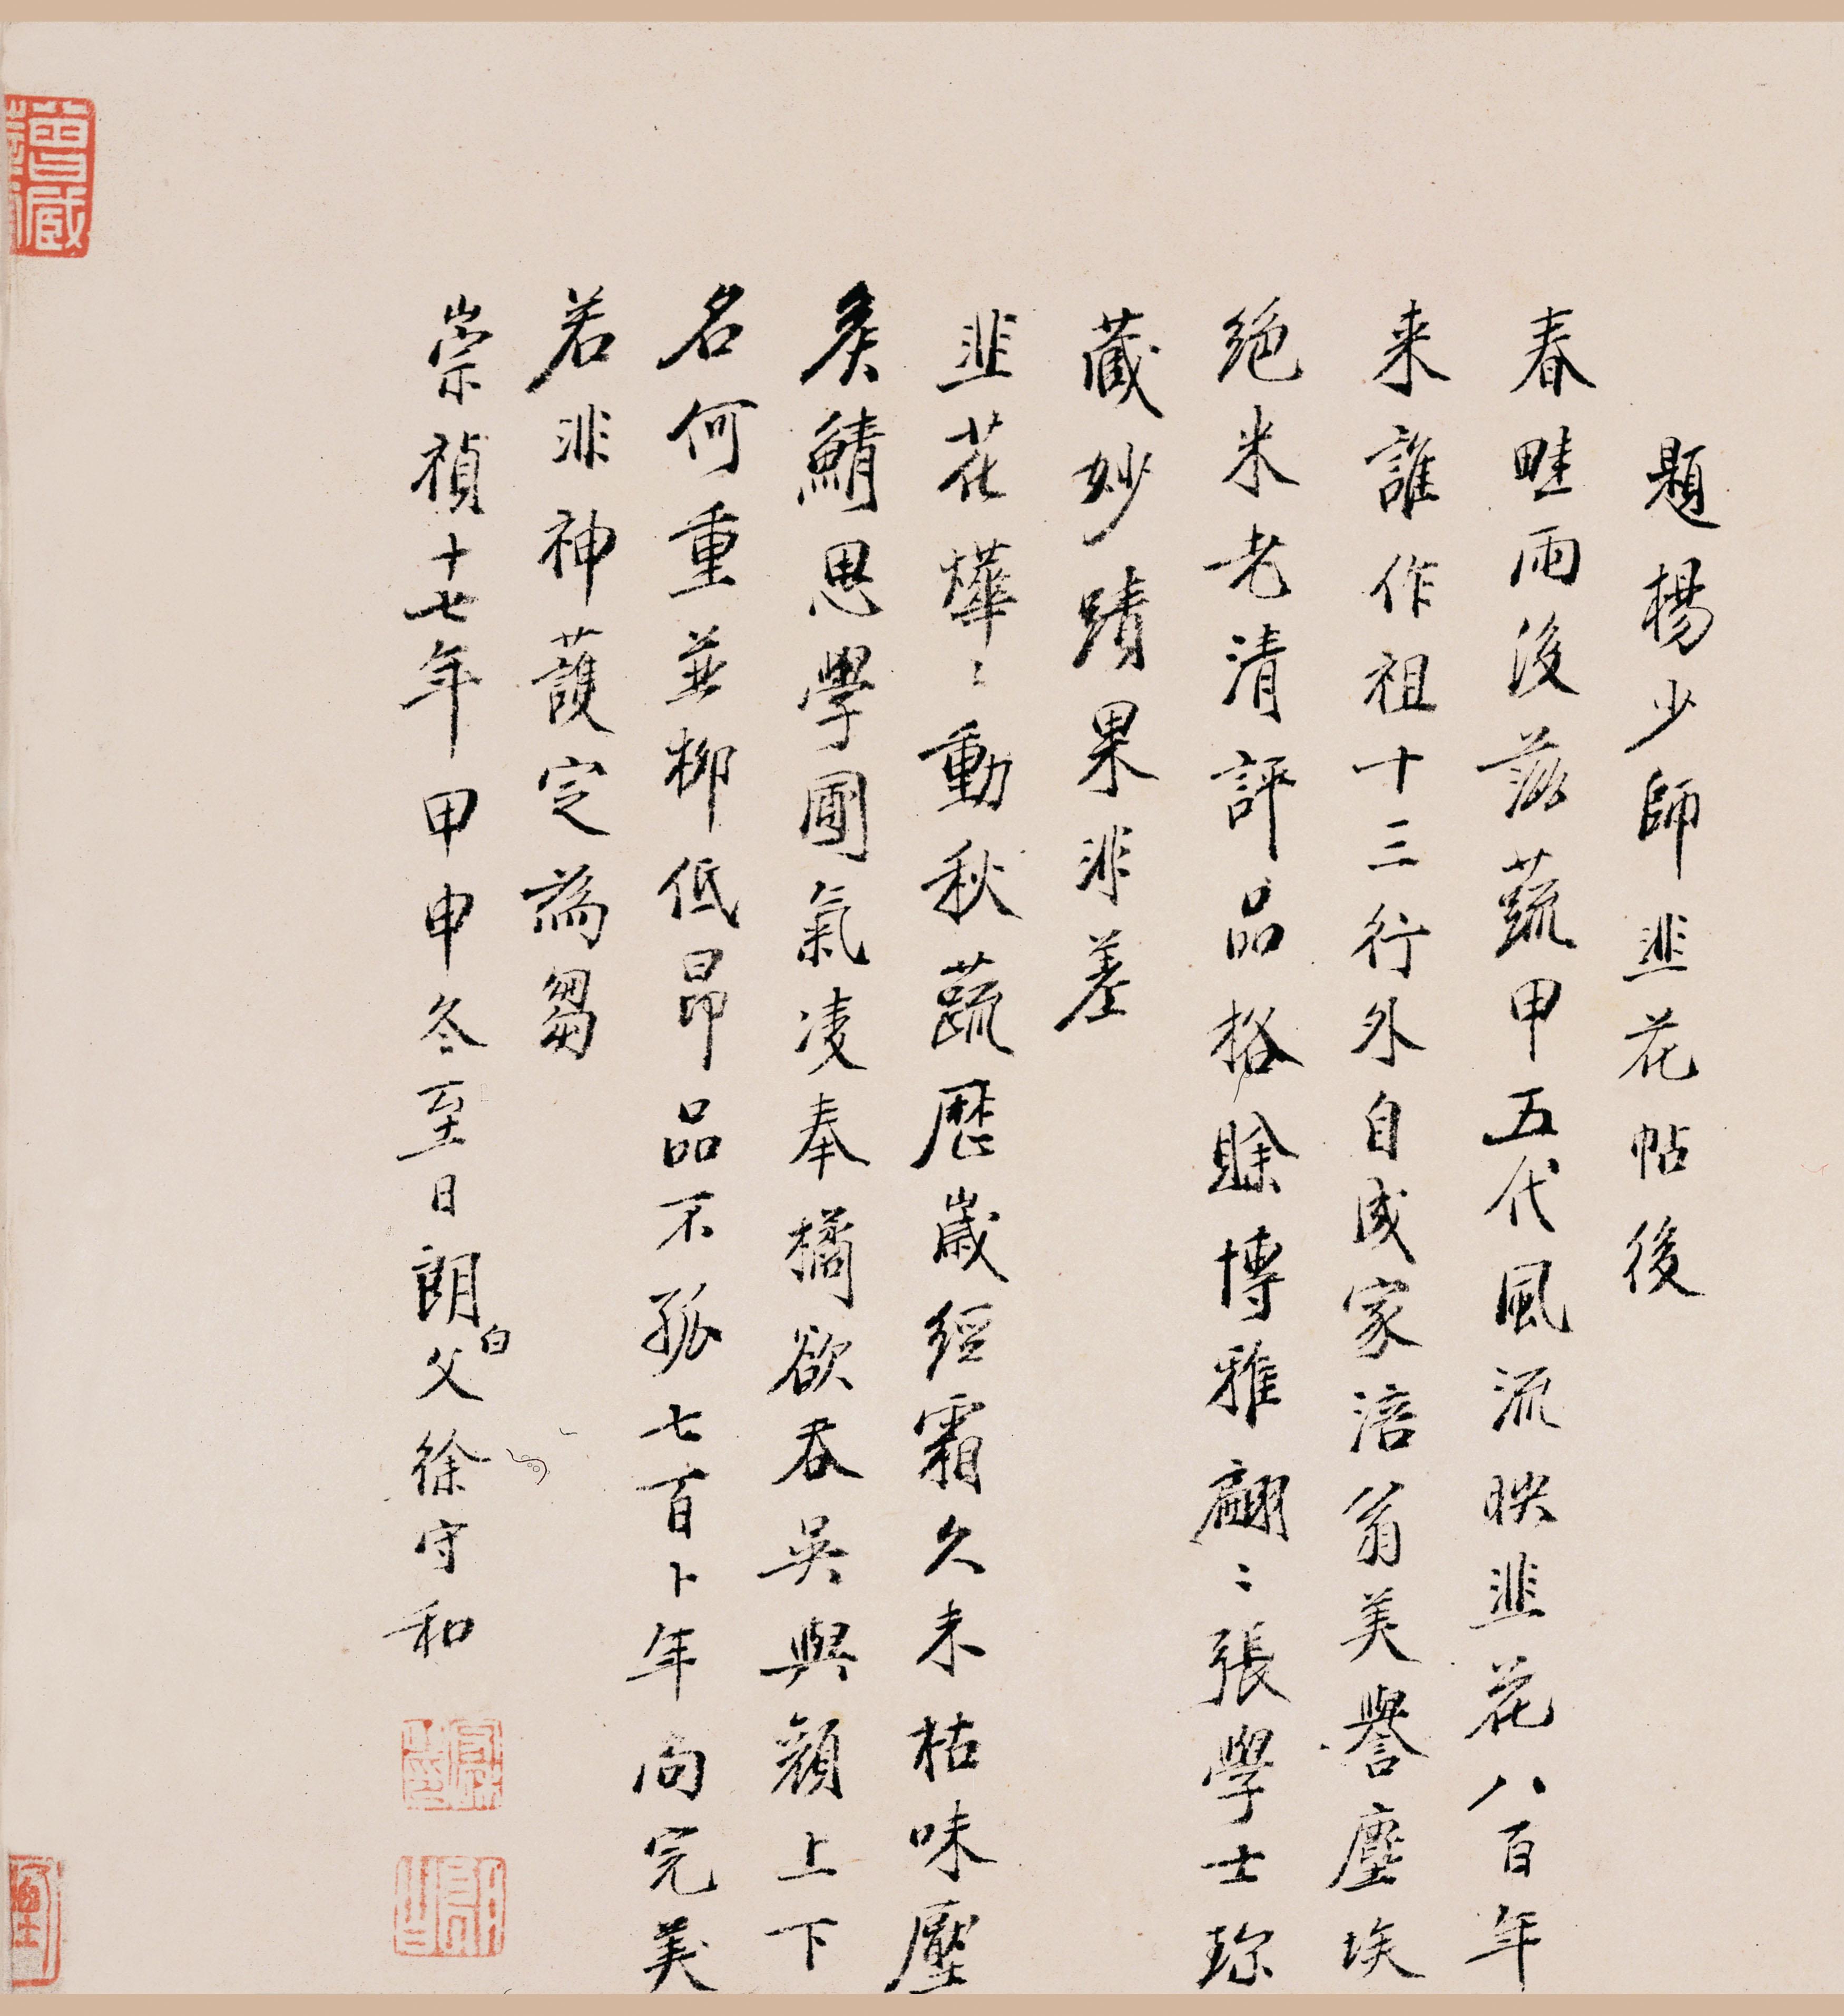 題楊少師韭花帖後
春畦雨後茁蔬甲五代風流映韭花八百年
来誰作祖十三行外自成家涪翁美譽塵埃
絕米老清評品格賖博雅翩〻張學士珎
藏妙蹟果非差
韭花燁〻動秋蔬歷歲經霜久未枯味壓
矦鯖思學圃氣凌奉橘欲吞吳與顏上下
名何重並柳低昂品不孤七百卜年尚完美
若非神護定為芻
崇禎十七年甲申冬至日朗白父徐守和
曾藏